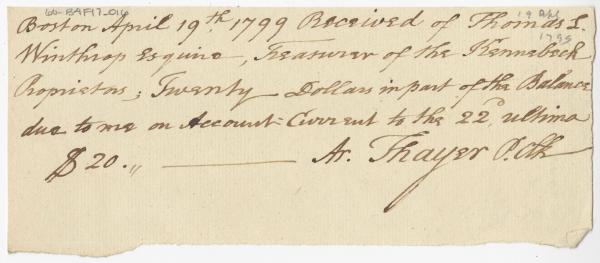 60-BAF17.016
19 Apl
1799
Boston April 19th. 1799 Received of Thomas L.
Winthrop Esquire, Treasurer of the Kennebeck
Proprietors; Twenty Dollars in part of the Balance
due to me on Account Current to the 22d. ultimo
$20.,, Ar. Thayer P. Clk